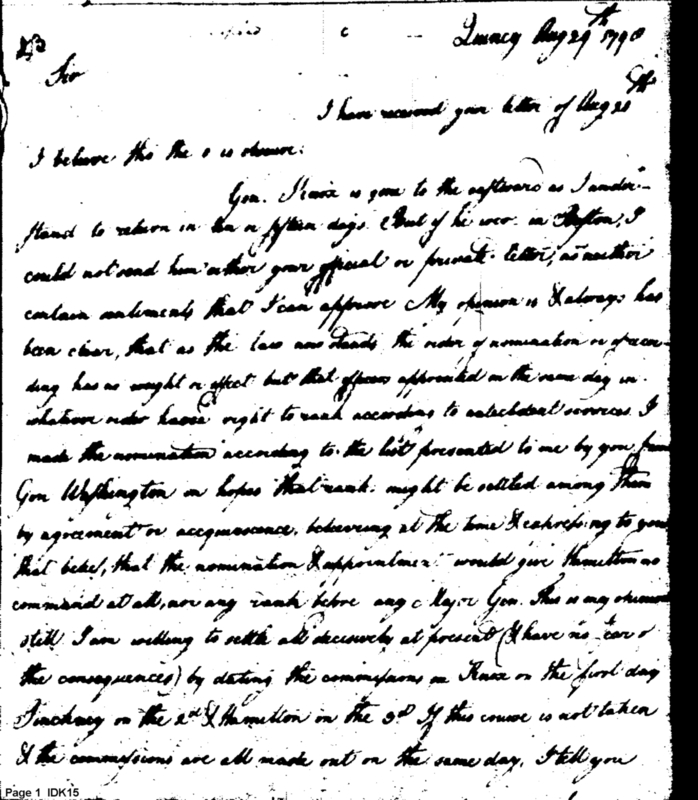 Quincy Aug 29th 1798
Sir
I have received your letter of Aug 20th
I believe tho the 0 is obscure.
Gen. Knox is gone to the eastward as I under-
stand to return in ten or fifteen days. But if he were in Boston, I
could not send him either your official or private letter, as neither
contain sentiments that I can approve My opinion is & always has
been clear, that as the law now stands the order of nomination or of recor-
ding has no weight or effect but that officers appointed on the same day in
whatever order have a right to rank according to antecedent services. I
made the nomination according to the list presented to me by you from
Gen Washington in hopes that rank might be settled among them
by agreement or acquiescence, believing at the time & expressing to you
that belief, that the nomination & appointment would give Hamilton no
command at all, nor any rank before any Major Gen. This is my opinion
still I am willing to settle all decisively at present (& have no fear of
the consequences) by dating the commissions on Knox on the first day
Pinckney on the 2nd & Hamilton on the 3d If this course is not taken
& the commissions are all made out on the same day, I tell you
Page 1 IDK15